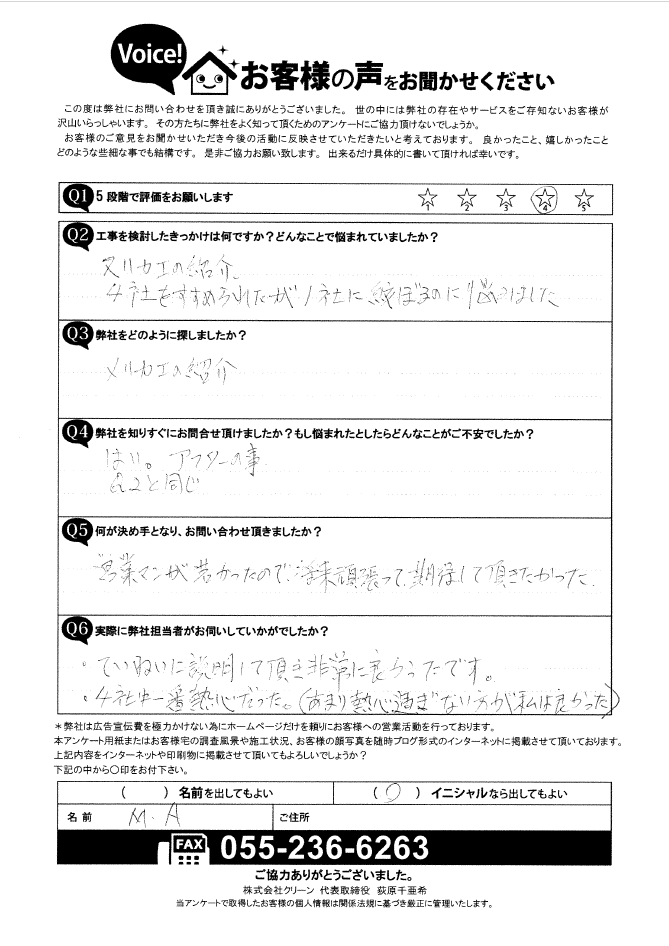 Voice!
お客様の声をお聞かせください
この度は弊社にお問い合わせを頂き誠にありがとうございました。 世の中には弊社の存在やサービスをご存知ないお客様が
沢山いらっしゃいます。 その方たちに弊社をよく知って頂くためのアンケートにご協力頂けないでしょうか。
お客様のご意見をお聞かせいただき今後の活動に反映させていただきたいと考えております。 良かったこと、嬉しかったこと
どのような些細な事でも結構です。 是非ご協力お願い致します。 出来るだけ具体的に書いて頂ければ幸いです。
Q1 5段階で評価をお願いします 1 2 3 4 5
Q2 工事を検討したきっかけは何ですか?どんなことで悩まれていましたか?
ヌリカエの紹介。
4社をすすめられたが1社に絞ぼるのに悩みました
Q3 弊社をどのように探しましたか?
ヌリカエの紹介
Q4 弊社を知りすぐにお問合せ頂けましたか?もし悩まれたとしたらどんなことがご不安でしたか?
はい。アフターの事
Q2と同じ
Q5 何が決め手となり、お問い合わせ頂きましたか?
営業マンが若かったので、将来頑張って、期待して頂きたかった.
Q6 実際に弊社担当者がお伺いしていかがでしたか?
・ていねいに説明して頂き非常に良かったです。
・4社中一番熱心だった。(あまり熱心過ぎない方が私は良かった)
*弊社は広告宣伝費を極力かけない為にホームページだけを頼りにお客様への営業活動を行っております。
本アンケート用紙またはお客様宅の調査風景や施工状況、お客様の顔写真を随時ブログ形式のインターネットに掲載させて頂いております。
上記内容をインターネットや印刷物に掲載させて頂いてもよろしいでしょうか?
下記の中から○印をお付下さい。
( ) 名前を出してもよい (○) イニシャルなら出してもよい
名前 M.A ご住所
FAX 055-236-6263
ご協力ありがとうございました。
株式会社クリーン 代表取締役 荻原千亜希
当アンケートで取得したお客様の個人情報は関係法規に基づき厳正に管理いたします。